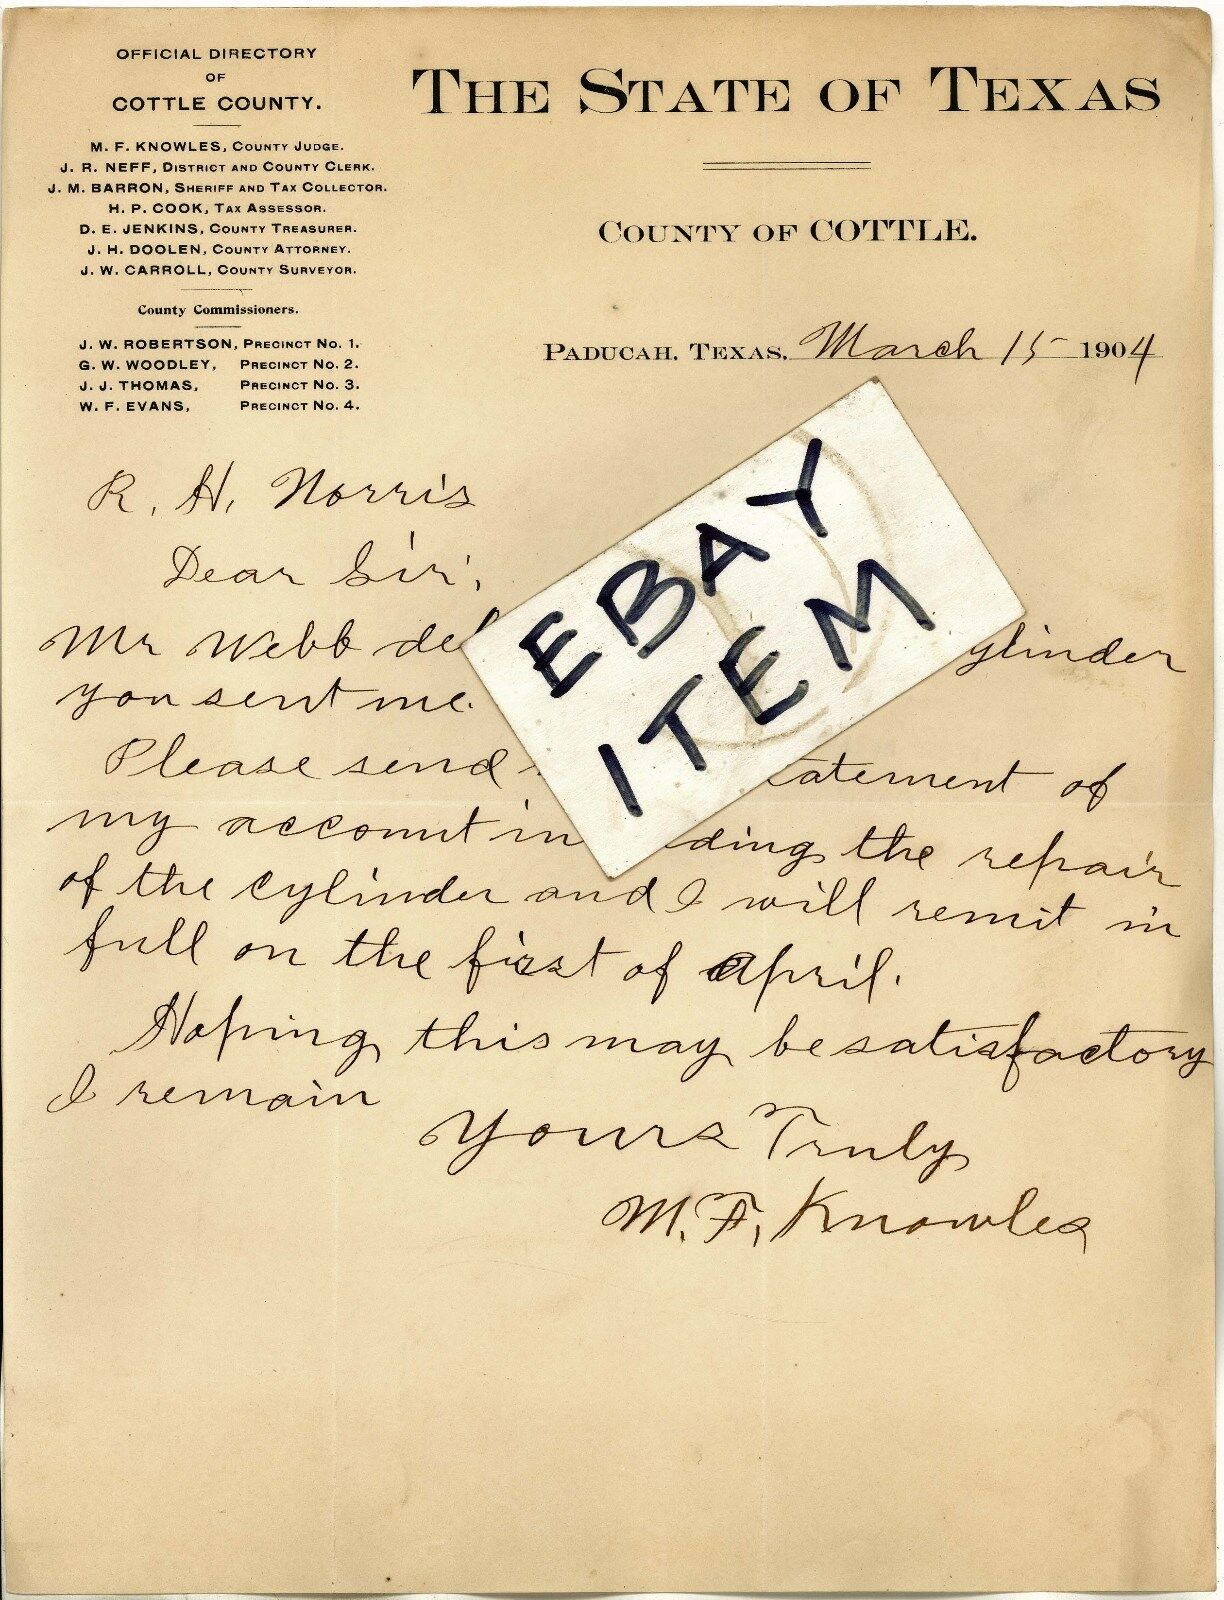 OFFICIAL DIRECTORY
OF
COTTLE COUNTY.
M. F. KNOWLES, COUNTY JUDGE.
J. R. NEFF, DISTRICT AND COUNTY CLERK.
J. M. BARRON, SHERIFF AND TAX COLLECTOR.
H. P. COOK, TAX ASSESSOR.
D. E. JENKINS, COUNTY TREASURER.
J. H. DOOLEN, COUNTY ATTORNEY.
J. W. CARROLL, COUNTY SURVEYOR.
County Commissioners.
J. W. ROBERTSON, PRECINCT No. 1.
G. W. WOODLEY, PRECINCT No. 2.
J. J. THOMAS, PRECINCT No. 3.
W. F. EVANS, PRECINCT No. 4.
THE STATE OF TEXAS
COUNTY OF COTTLE.
PADUCAH, TEXAS, March 15 1904
R. H. Norris
Dear Sir;
Mr Webb del ylinder
you sent me.
Please send tatement of
my account in ding the repair
of the cylinder and I will remit in
full on the first of april.
Hoping this may be satisfactory
I remain
Yours Truly
M. F. Knowles
EBAY
ITEM